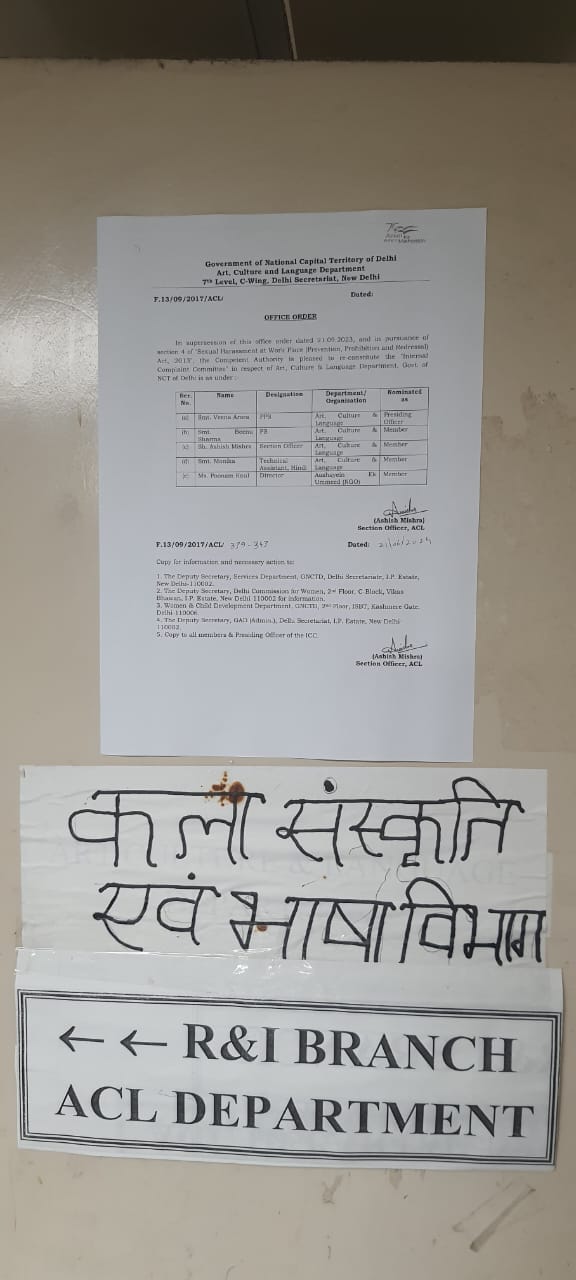 Government of National Capital Territory of Delhi
Art, Culture and Language Department
7th Level, C-Wing, Delhi Secretariat, New Delhi
F.13/09/2017/ACL/ Dated:
OFFICE ORDER
In supersession of this office order dated 21.09.2023, and in pursuance of
section 4 of 'Sexual Harassment at Work Place (Prevention, Prohibition and Redressal)
Act, 2013', the Competent Authority is pleased to re-constitute the 'Internal
Complaint Committee' in respect of Art, Culture & Language Department, Govt. of
NCT of Delhi is as under:
Ser. No. Name Designation Department/ Organisation Nominated as
(a) Smt. Veena Arora PPS Art, Culture & Language Presiding Officer
(b) Smt. Sharma PS Art, Culture & Language Member
(c) Sh. Ashish Mishra Section Officer Art, Culture & Language Member
(d) Smt. Monika Technical Assistant, Hindi Art, Culture & Language Member
(e) Ms. Poonam Koul Director Ek Ummeed (NGO) Member
(Ashish Mishra)
Section Officer, ACL
F.13/09/2017/ACL/ 379-347 Dated: 21/06/2024
Copy for information and necessary action to:
1. The Deputy Secretary, Services Department, GNCTD, Delhi Secretariate, I.P. Estate,
New Delhi-110002.
2. The Deputy Secretary, Delhi Commission for Women, 2nd Floor, C-Block, Vikas
Bhawan, I.P. Estate, New Delhi-110002 for information.
3. Women & Child Development Department, GNCTD, 2nd Floor, ISBT, Kashmere Gate,
Delhi-110006.
4. The Deputy Secretary, GAD (Admn.), Delhi Secretariat, I.P. Estate, New Delhi-
110002.
5. Copy to all members & Presiding Officer of the ICC.
(Ashish Mishra)
Section Officer, ACL
कला संस्कृति
एवं भाषा विभाग
←← R&I BRANCH
ACL DEPARTMENT